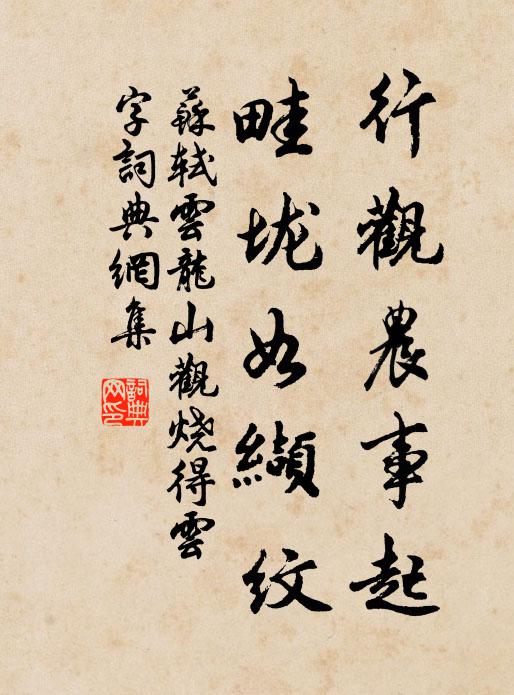 行觀農事起
畦垅如纈纹
蘇軾雲龍山觀烧得雲
字詞典網集
詞典網印